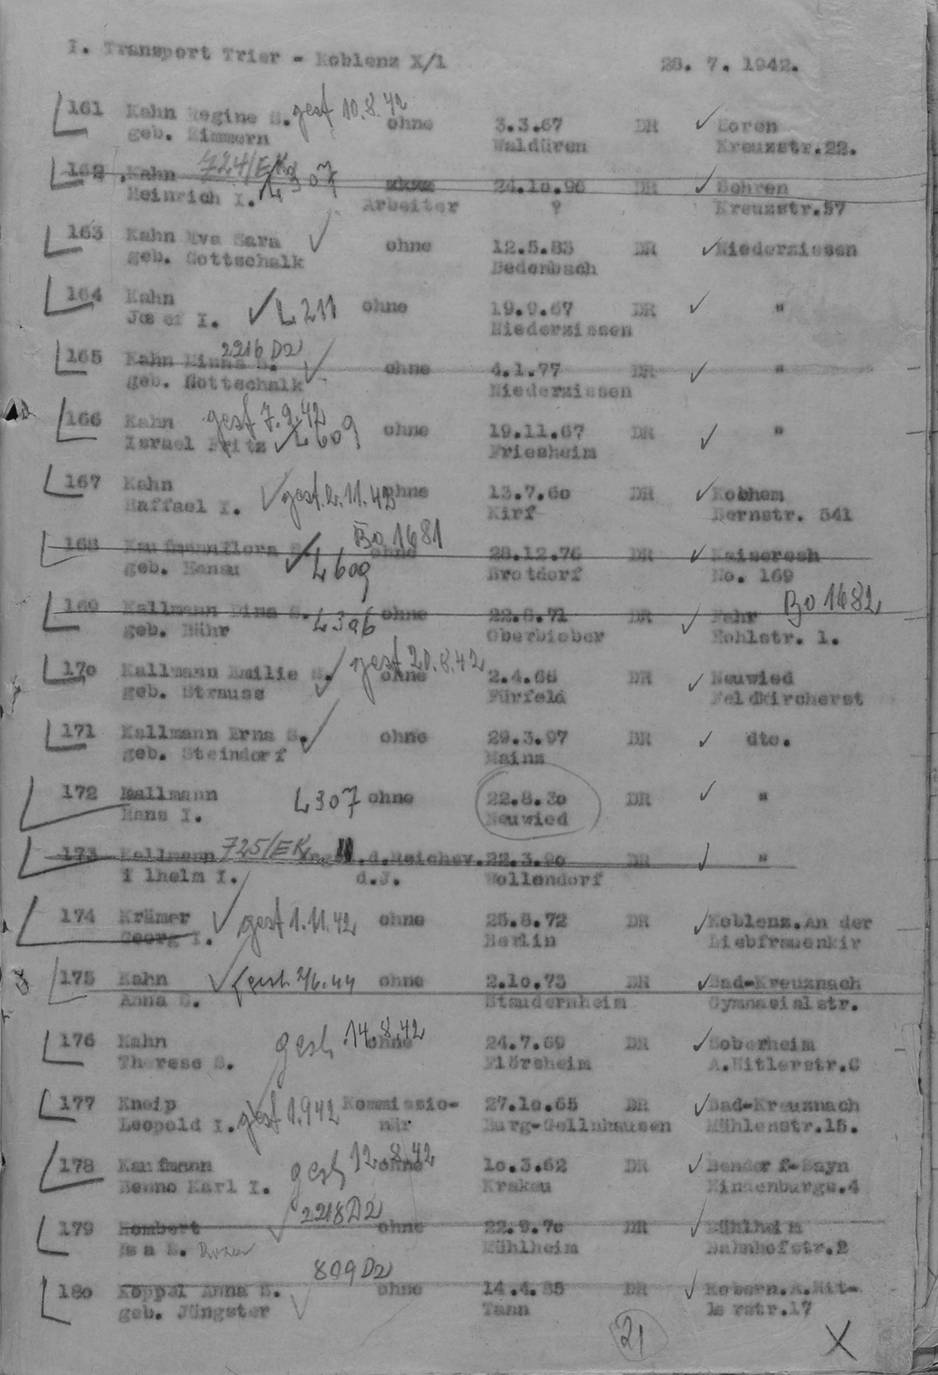 I. Transport Trier - Koblenz X/1 28. 7. 1942.
161 Kahn Regine S. gest 10.8.42 ohne 3.3.67 DR Soren
geb. Zimmern Waldüren Kreuzstr.22.
162 Kahn 724/EKd 24.10.96 DR Sohren
Heinrich I. L 307 Arbeiter ? Kreuzstr.57
163 Kahn Eva Sara ohne 12.5.83 DR Niederzissen
geb. Gottschalk Bedenbach
164 Kahn ohne 19.9.67 DR "
Josef I. L 211 Niederzissen
2216 D2
165 Kahn Minna S. ohne 4.1.77 DR "
geb. Gottschalk Niederzissen
166 Kahn gest 7.9.42 ohne 19.11.67 DR "
Israel Fritz L 609 Friesheim
167 Kahn ohne 13.7.60 DR Kobhem
Raffael I. gest. 2.11.42 Kirf Bernstr. 541
Bo 1681
168 Kaufmann Flora S. ohne 28.12.76 DR Kaisersesh
geb. Hanau L 609 Brotdorf No. 169
169 Kallmann Dina S. L 396 ohne 22.8.71 DR Fahr Bo 1682
geb. Bähr Oberbieber Hohlstr. 1.
170 Kallmann Emilie S. gest 20.8.42 ohne 2.4.66 DR Neuwied
geb. Strauss Fürfeld Feldkircherst
171 Kallmann Erna S. ohne 29.3.97 DR dto.
geb. Steindorf Mainz
172 Kallmann L 307 ohne 22.8.30 DR "
Hans I. Neuwied
173 Kallmann 725/EK d.Reichsv. 22.3.90 DR "
ilhelm I. d.J. Wollendorf
174 Krämer gest 1.11.42 ohne 25.8.72 DR Koblenz.An der
Georg I. Berlin Liebfrauenkir
175 Kahn ohne 2.10.73 DR Bad-Kreuznach
Anna S. Staudernheim Gymnasialstr.
176 Kahn gest. 14.8.42 ohne 24.7.69 DR Soberheim
Therese S. Flörsheim A.Hitlerstr.6
177 Kneip Kommissio- 27.10.65 DR Bad-Kreuznach
Leopold I. gest 1.9 42 när Burg-Gellnhausen Mühlenstr.15.
178 Kaufmann gest 12.8.42 ohne 10.3.62 DR Bendorf-Sayn
Benno Karl I. Krakau Hindenburgs.4
2218 D2
179 Lombert ohne 22.9.70 DR Mühlheim
S. Mühlheim Bahnhofstr.2
809 D2
180 Koppel Anna S. ohne 14.4.85 DR Kobern.A.Hit-
geb. Jüngster Tann lerstr.17
21 X